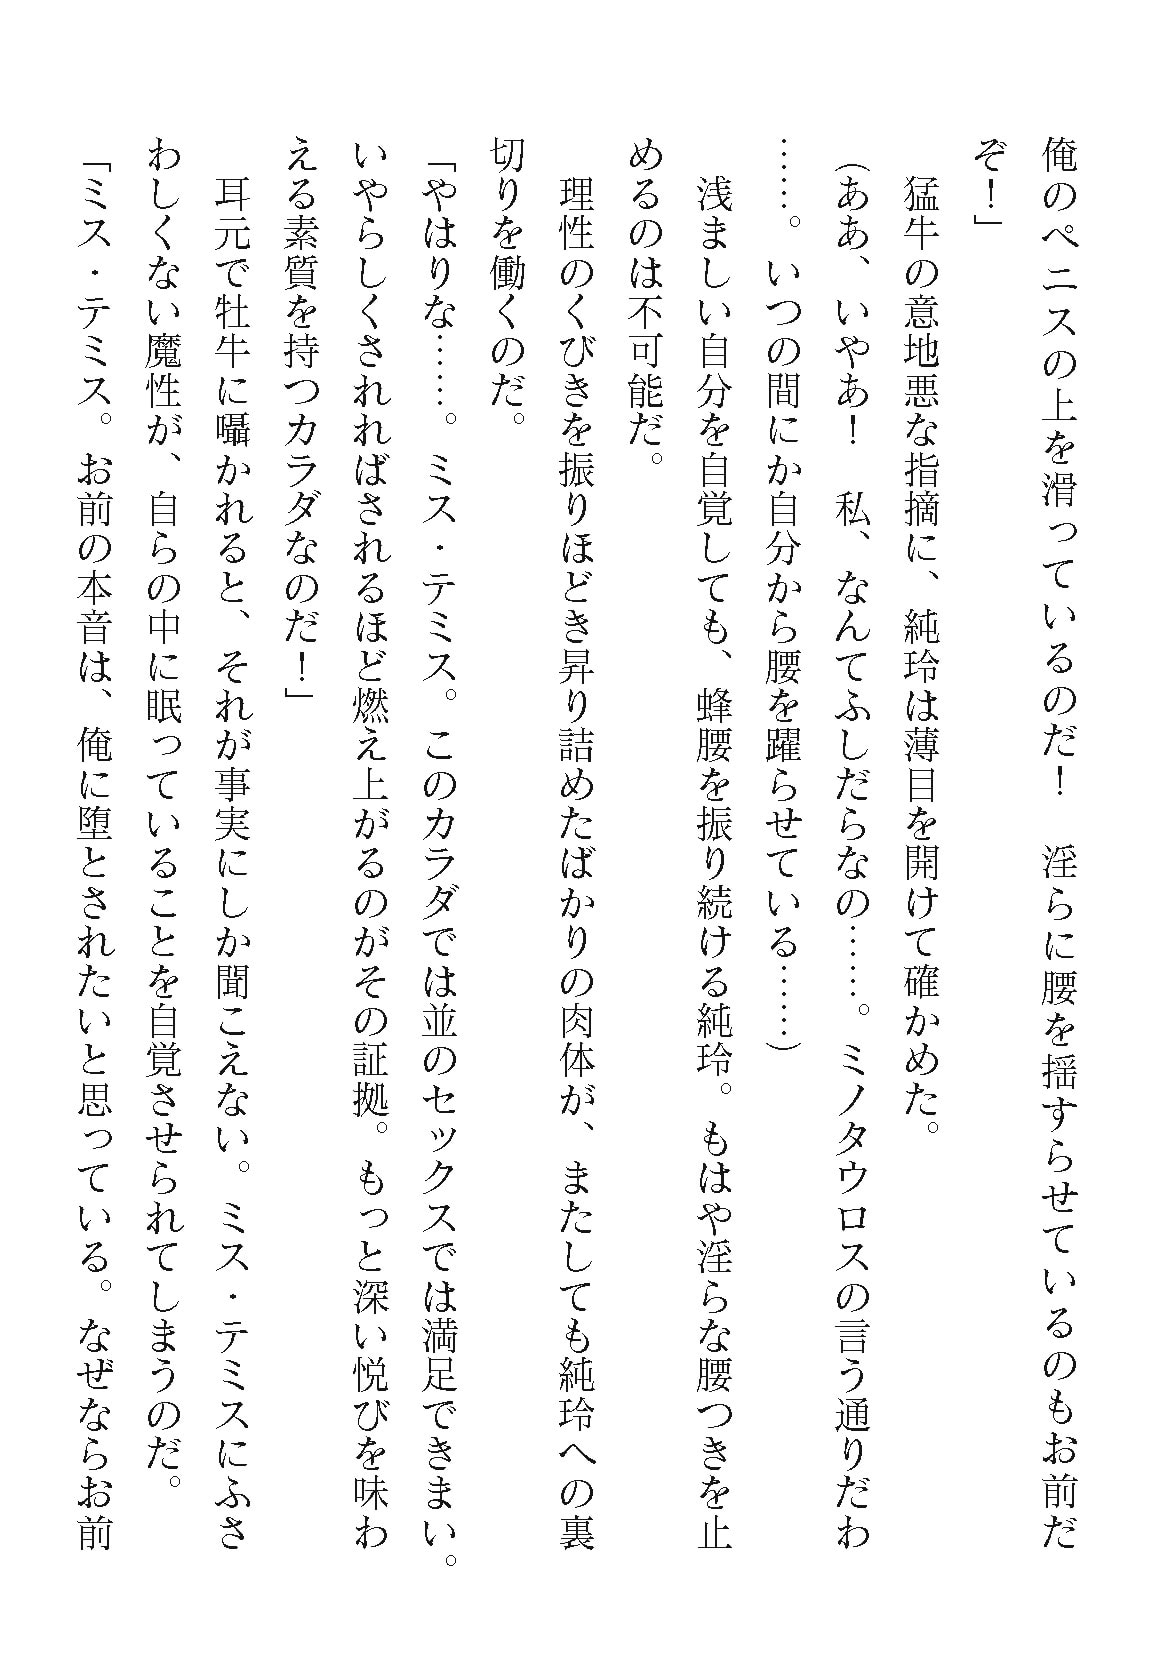 俺のペニスの上を滑っているのだ！　淫らに腰を揺すらせているのもお前だ
ぞ！」
　猛牛の意地悪な指摘に、純玲は薄目を開けて確かめた。
（ああ、いやあ！　私、なんてふしだらなの……。ミノタウロスの言う通りだわ
……。いつの間にか自分から腰を躍らせている……）
　浅ましい自分を自覚しても、蜂腰を振り続ける純玲。もはや淫らな腰つきを止
めるのは不可能だ。
　理性のくびきを振りほどき昇り詰めたばかりの肉体が、またしても純玲への裏
切りを働くのだ。
「やはりな……。ミス・テミス。このカラダでは並のセックスでは満足できまい。
いやらしくされればされるほど燃え上がるのがその証拠。もっと深い悦びを味わ
える素質を持つカラダなのだ！」
　耳元で牡牛に囁かれると、それが事実にしか聞こえない。ミス・テミスにふさ
わしくない魔性が、自らの中に眠っていることを自覚させられてしまうのだ。
「ミス・テミス。お前の本音は、俺に堕とされたいと思っている。なぜならお前